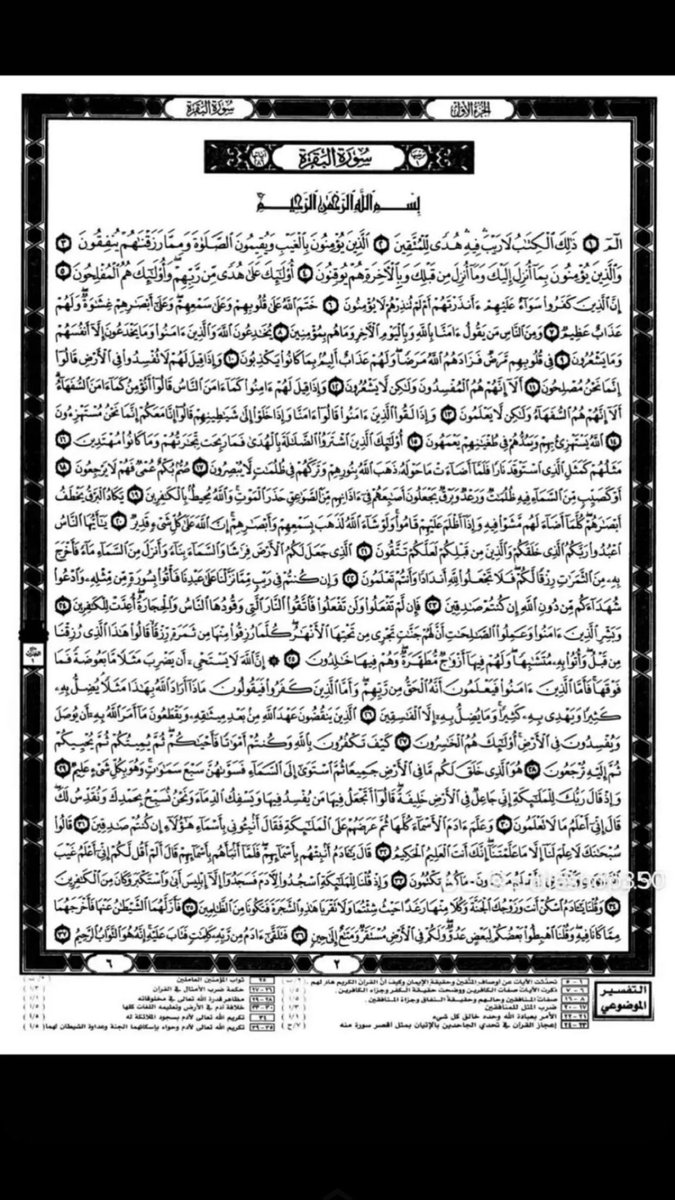 الجزء الأول
سورة البقرة
سورة البقرة
بسم الله الرحمن الرحيم
الم ١ ذلك الكتاب لا ريب فيه هدى للمتقين ٢ الذين يؤمنون بالغيب ويقيمون الصلوة ومما رزقناهم ينفقون ٣
والذين يؤمنون بما أنزل إليك وما أنزل من قبلك وبالآخرة هم يوقنون ٤ أولئك على هدى من ربهم وأولئك هم المفلحون ٥
إن الذين كفروا سواء عليهم ءأنذرتهم أم لم تنذرهم لا يؤمنون ٦ ختم الله على قلوبهم وعلى سمعهم وعلى أبصارهم غشاوة ولهم
عذاب عظيم ٧ ومن الناس من يقول ءامنا بالله وباليوم الآخر وما هم بمؤمنين ٨ يخادعون الله والذين ءامنوا وما يخدعون إلا أنفسهم
وما يشعرون ٩ في قلوبهم مرض فزادهم الله مرضا ولهم عذاب أليم بما كانوا يكذبون ١٠ وإذا قيل لهم لا تفسدوا في الأرض قالوا
إنما نحن مصلحون ١١ ألا إنهم هم المفسدون ولكن لا يشعرون ١٢ وإذا قيل لهم ءامنوا كما ءامن الناس قالوا أنؤمن كما ءامن السفهاء
ألا إنهم هم السفهاء ولكن لا يعلمون ١٣ وإذا لقوا الذين ءامنوا قالوا ءامنا وإذا خلوا إلى شياطينهم قالوا إنا معكم إنما نحن مستهزءون
١٤ الله يستهزئ بهم ويمدهم في طغيانهم يعمهون ١٥ أولئك الذين اشتروا الضلالة بالهدى فما ربحت تجارتهم وما كانوا مهتدين ١٦
مثلهم كمثل الذي استوقد نارا فلما أضاءت ما حوله ذهب الله بنورهم وتركهم في ظلمات لا يبصرون ١٧ صم بكم عمي فهم لا يرجعون ١٨
أو كصيب من السماء فيه ظلمات ورعد وبرق يجعلون أصابعهم في ءاذانهم من الصواعق حذر الموت والله محيط بالكافرين ١٩ يكاد البرق يخطف
أبصارهم كلما أضاء لهم مشوا فيه وإذا أظلم عليهم قاموا ولو شاء الله لذهب بسمعهم وأبصارهم إن الله على كل شيء قدير ٢٠ يأيها الناس
اعبدوا ربكم الذي خلقكم والذين من قبلكم لعلكم تتقون ٢١ الذي جعل لكم الأرض فراشا والسماء بناء وأنزل من السماء ماء فأخرج
به من الثمرات رزقا لكم فلا تجعلوا لله أندادا وأنتم تعلمون ٢٢ وإن كنتم في ريب مما نزلنا على عبدنا فأتوا بسورة من مثله وادعوا
شهداءكم من دون الله إن كنتم صادقين ٢٣ فإن لم تفعلوا ولن تفعلوا فاتقوا النار التي وقودها الناس والحجارة أعدت للكافرين ٢٤
وبشر الذين ءامنوا وعملوا الصالحات أن لهم جنات تجري من تحتها الأنهار كلما رزقوا منها من ثمرة رزقا قالوا هذا الذي رزقنا
من قبل وأتوا به متشابها ولهم فيها أزواج مطهرة وهم فيها خالدون ٢٥ إن الله لا يستحي أن يضرب مثلا ما بعوضة فما
فوقها فأما الذين ءامنوا فيعلمون أنه الحق من ربهم وأما الذين كفروا فيقولون ماذا أراد الله بهذا مثلا يضل به
كثيرا ويهدي به كثيرا وما يضل به إلا الفاسقين ٢٦ الذين ينقضون عهد الله من بعد ميثاقه ويقطعون ما أمر الله به أن يوصل
ويفسدون في الأرض أولئك هم الخاسرون ٢٧ كيف تكفرون بالله وكنتم أمواتا فأحياكم ثم يميتكم ثم يحييكم
ثم إليه ترجعون ٢٨ هو الذي خلق لكم ما في الأرض جميعا ثم استوى إلى السماء فسواهن سبع سماوات وهو بكل شيء عليم ٢٩
وإذ قال ربك للملائكة إني جاعل في الأرض خليفة قالوا أتجعل فيها من يفسد فيها ويسفك الدماء ونحن نسبح بحمدك ونقدس لك
قال إني أعلم ما لا تعلمون ٣٠ وعلم ءادم الأسماء كلها ثم عرضهم على الملائكة فقال أنبئوني بأسماء هؤلاء إن كنتم صادقين ٣١ قالوا
سبحانك لا علم لنا إلا ما علمتنا إنك أنت العليم الحكيم ٣٢ قال يآدم أنبئهم بأسمائهم فلما أنبأهم بأسمائهم قال ألم أقل لكم إني أعلم غيب
السماوات والأرض وأعلم ما تبدون وما كنتم تكتمون ٣٣ وإذ قلنا للملائكة اسجدوا لآدم فسجدوا إلا إبليس أبى واستكبر وكان من الكافرين
٣٤ وقلنا يآدم اسكن أنت وزوجك الجنة وكلا منها رغدا حيث شئتما ولا تقربا هذه الشجرة فتكونا من الظالمين ٣٥ فأزلهما الشيطان عنها فأخرجهما
مما كانا فيه وقلنا اهبطوا بعضكم لبعض عدو ولكم في الأرض مستقر ومتاع إلى حين ٣٦ فتلقى ءادم من ربه كلمات فتاب عليه إنه هو التواب الرحيم ٣٧
٢
٦
التفسير الموضوعي
١ - ٥ تحدثت الآيات عن أوصاف المتقين وحقيقة الإيمان وكيف أن القرآن الكريم هاد لهم
٦ - ٧ ذكرت الآيات صفات الكافرين ووضحت حقيقة الكفر وجزاء الكافرين
٨ - ١٦ صفات المنافقين وحالهم وحقيقة النفاق وجزاء المنافقين
١٧ - ٢٠ ضرب المثل للمنافقين
٢١ - ٢٢ الأمر بعبادة الله وحده خالق كل شيء
٢٣ - ٢٤ إعجاز القرآن في تحدي الجاحدين بالإتيان بمثل أقصر سورة منه
٢٥ ثواب المؤمنين العاملين
٢٦ - ٢٧ حكمة ضرب الأمثال في القرآن
٢٨ - ٢٩ مظاهر قدرة الله تعالى في مخلوقاته
٣٠ - ٣٣ خلافة آدم في الأرض وتعليمه اللغات كلها
٣٤ تكريم الله تعالى لآدم بسجود الملائكة له
٣٥ - ٣٩ تكريم الله تعالى لآدم وحواء بإسكانهما الجنة وعداوة الشيطان لهما